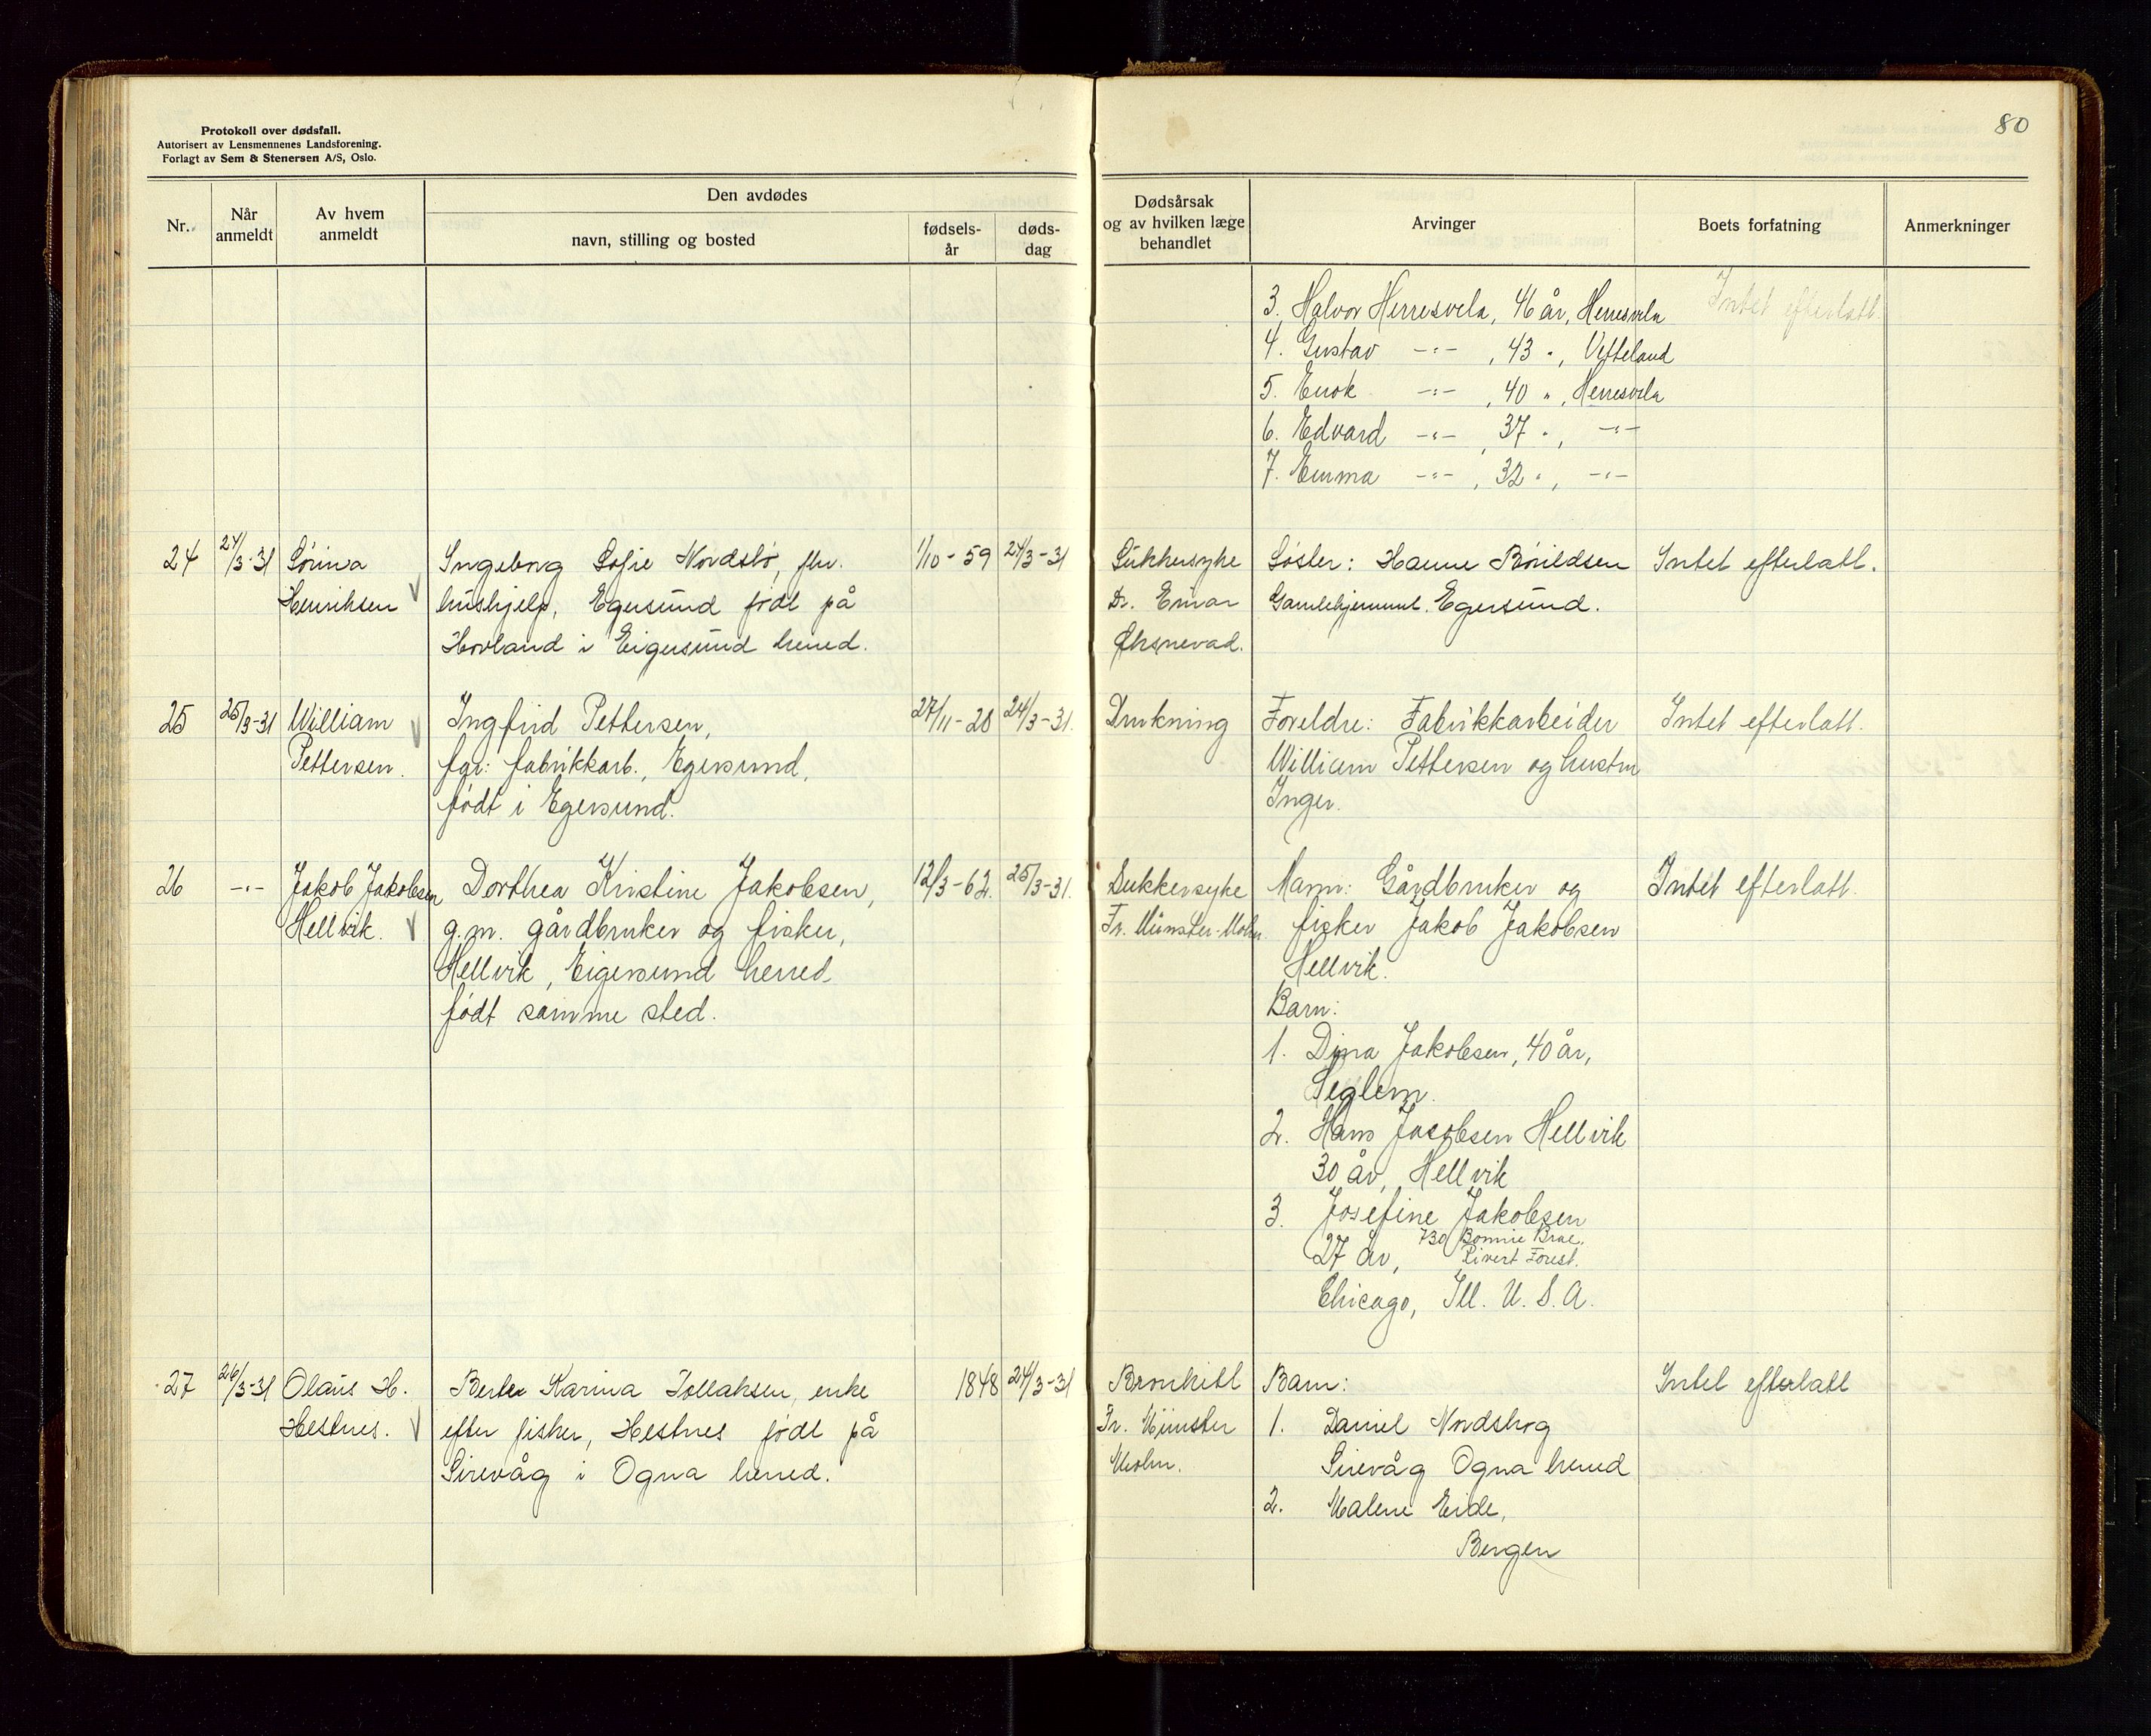 Protokoll over dødsfall.
Autorisert av Lensmennenes Landsforening.
Forlagt av Sem & Stenersen A/S, Oslo.
80
Nr.
Når anmeldt
Av hvem anmeldt
Den avdødes
navn, stilling og bosted
fødsels-år
døds-dag
Dødsårsak og av hvilken læge behandlet
Arvinger
Boets forfatning
Anmerkninger
3. Halvor Herresvela, 46 år, Herresvela
Intet efterlatt.
4. Gustav -"- , 43 ", Vetteland
5. Enok -"- , 40 ", Herresvela
6. Edvard -"- , 37 ", -"-
7. Emma -"- , 32 ", -"-
24
24/3-31
Sørina
Henriksen
Ingeborg Sofie Nordsbø, fhv.
hushjelp, Egersund født på
Hovland i Eigersund herred.
1/10-59
24/3-31
Sukkersyke
Dr. Einar
Søster: Hanne Bøildsen
Gamlehjemmet, Egersund.
Intet efterlatt.
25
25/3-31
William
Pettersen.
Ingfrid Pettersen,
far: fabrikkarb., Egersund,
født i Egersund.
27/11-28
24/3-31.
Drukning
Foreldre: Fabrikkarbeider
William Pettersen og hustru
Inger.
Intet efterlatt.
26
-"-
Jakob Jakobsen
Hellvik.
Dorthea Kristine Jakobsen,
g.m. gårdbruker og fisker,
Hellvik, Eigersund herred
født samme sted.
12/3-62.
25/3-31.
Sukkersyke
Fr. Münster-Mohn.
Mann: Gårdbruker og
fisker Jakob Jakobsen
Hellvik.
Barn:
1. Dina Jakobsen, 40 år,
Seglem.
2. Hans Jacobsen Hellvik
30 år, Hellvik
3. Josefine Jakobsen
27 år, 730 Bonnie Brae,
Rivert Forest.
Chicago, Ill. U. S. A.
Intet efterlatt.
27
26/3-31
Olaus H.
Hestnes.
Berte Karina Tollaksen, enke
efter fisker, Hestnes født på
Sirevåg i Ogna herred.
1848
24/3-31
Bronkitt
Fr. Münster
Mohn.
Barn:
1. Daniel Nordskog
Sirevåg Ogna herred
2. Malene Eide,
Bergen
Intet efterlatt